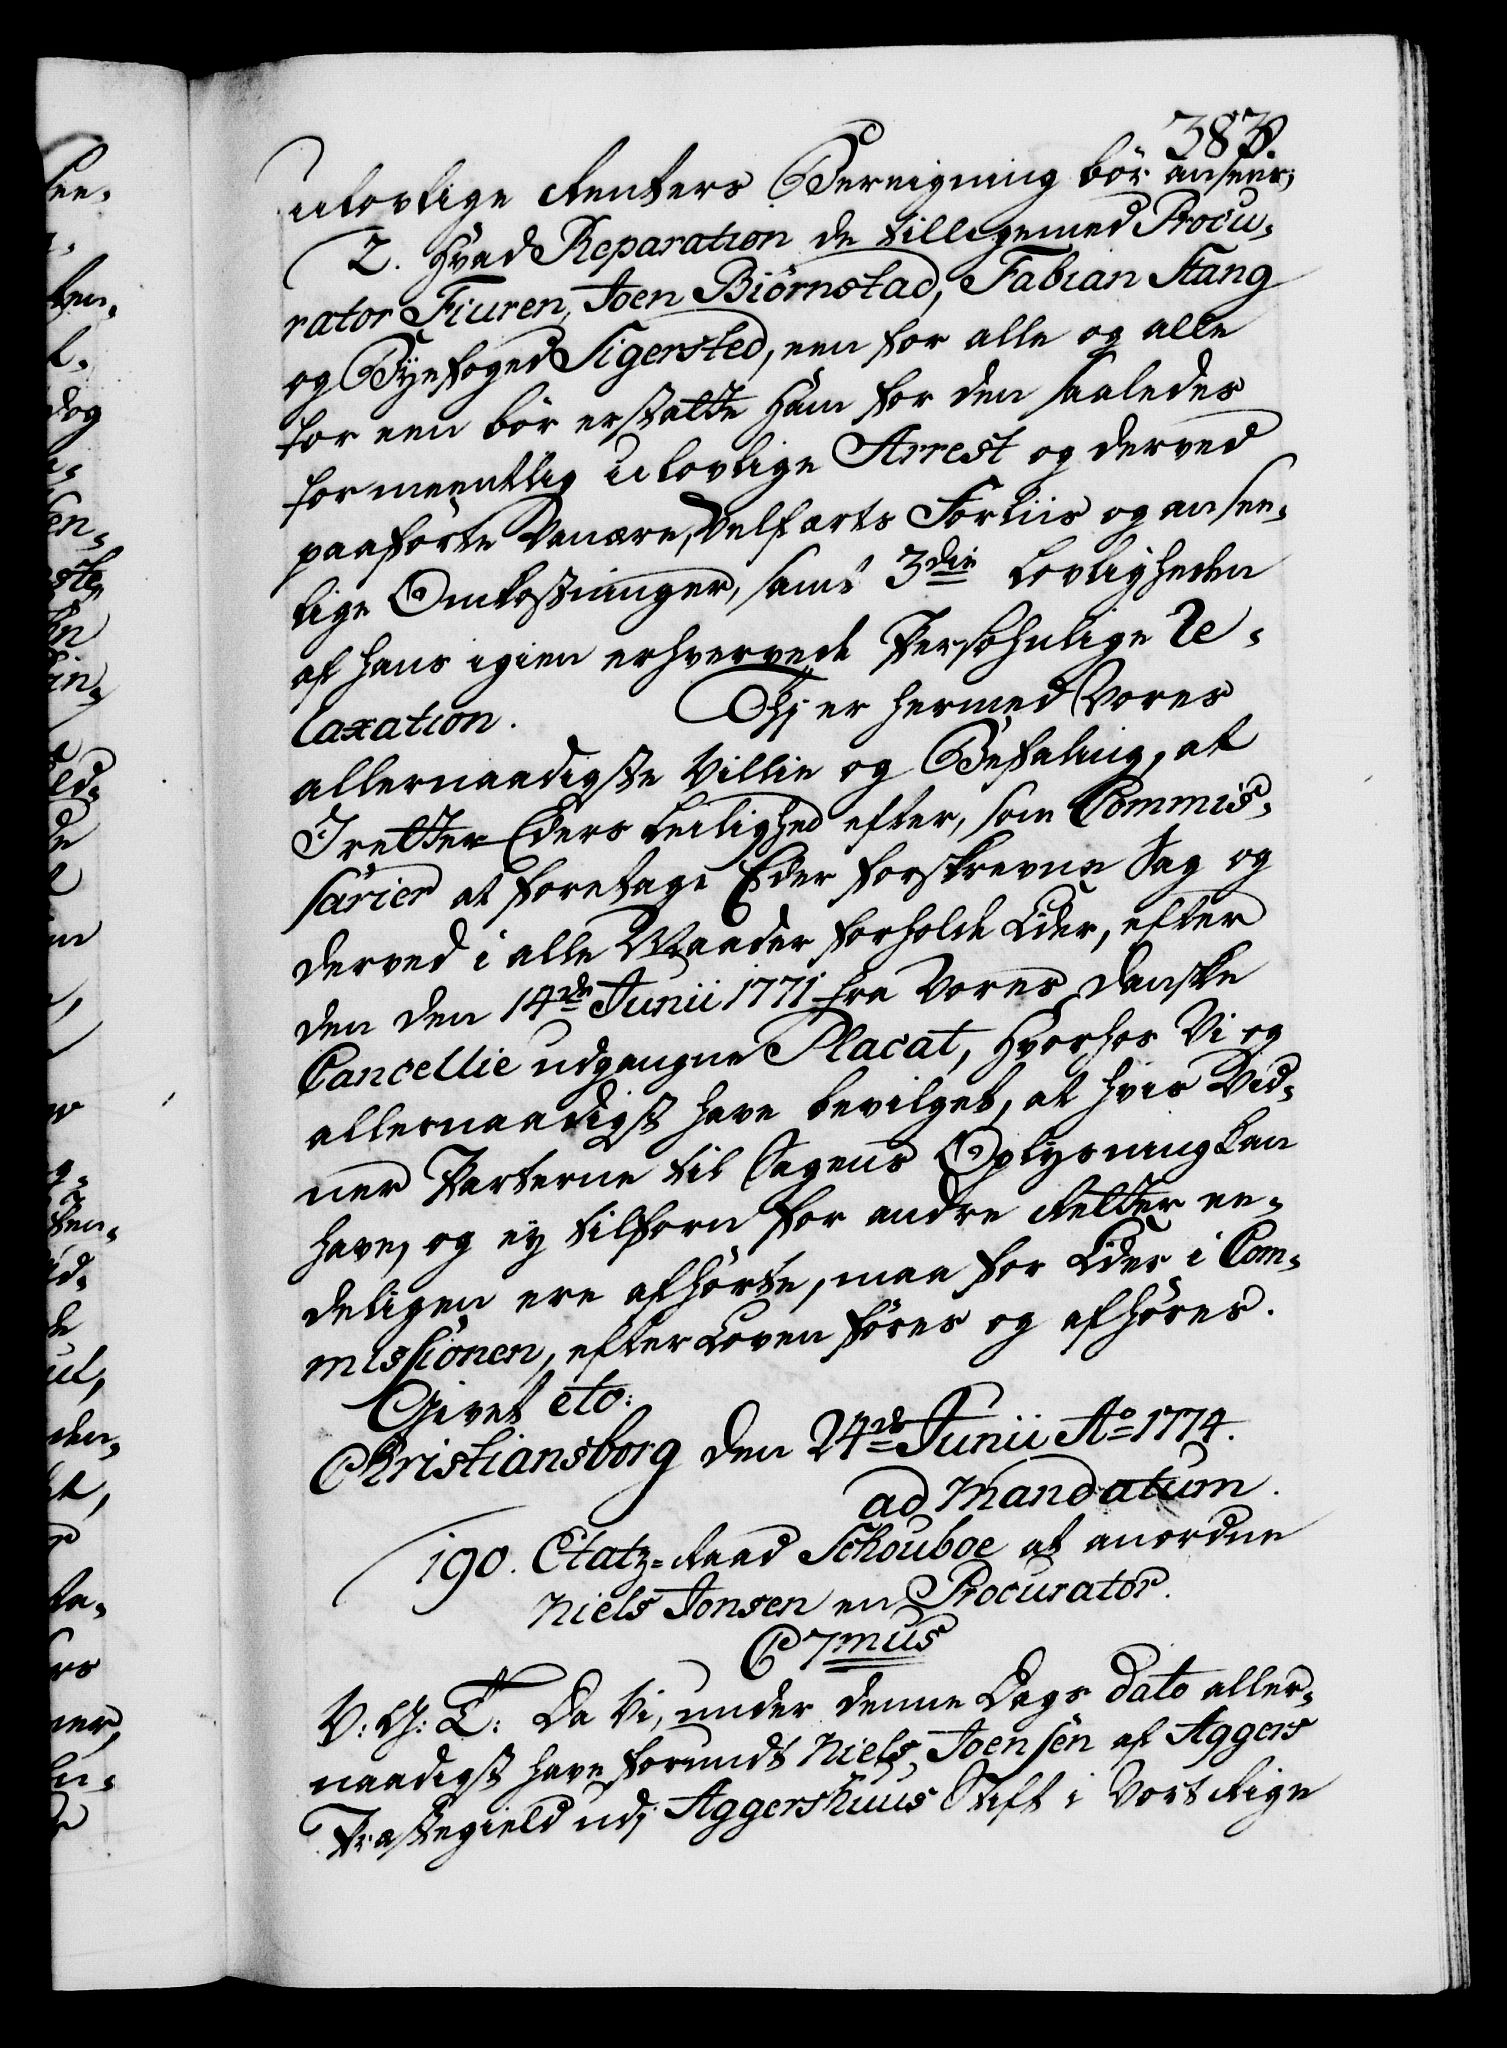 383.
ulovlige Renters Bereigning bör ansees;
2. Hvad Reparation de tilligemed Procu-
rator Fiuren, Joen Biörnstad, Fabian Stang
og Byefoged Sigersted, een for alle og alle
for een bör erstatte ham for den saaledes
formeentlig ulovlige Arrest og derved
paaförte Vanære, Velfærts Forliis og ansee-
lige Omkostninger, samt 3die Lovligheden
af hans igien erhvervede Persohnlige Re-
laxation. Thj er hermed Vores
allernaadigste Villie og Befaling, at
I retter Eders Leilighed efter, som Commis-
sarier at foretage Eder forskrevne Sag og
derved i alle Maader forholde Eder, efter
den den 14de Junii 1771 fra Vores danske
Cancellie udgangne Placat, hvorhos Vi og
allernaadigst have bevilget, at hvis Vid-
ner Parterne til Sagens Oplysning kan
have, og ey tilforn for andre Retter ee-
deligen ere afhörte, maa for Eder i Com-
missionen, efter Loven föres og afhöres.
Givet etc:
Christiansborg den 24de Junii Ao 1774.
ad Mandatum.
190. Etatz-Raad Schouboe at anordne
Niels Jonsen en Procurator.
C 7mus
V: G: T: Da Vi, under denne Dags Dato aller-
naadigst have forundt Niels Joensen af Aggers
Præstegield udj Aggershuus Stift i Vort Rige